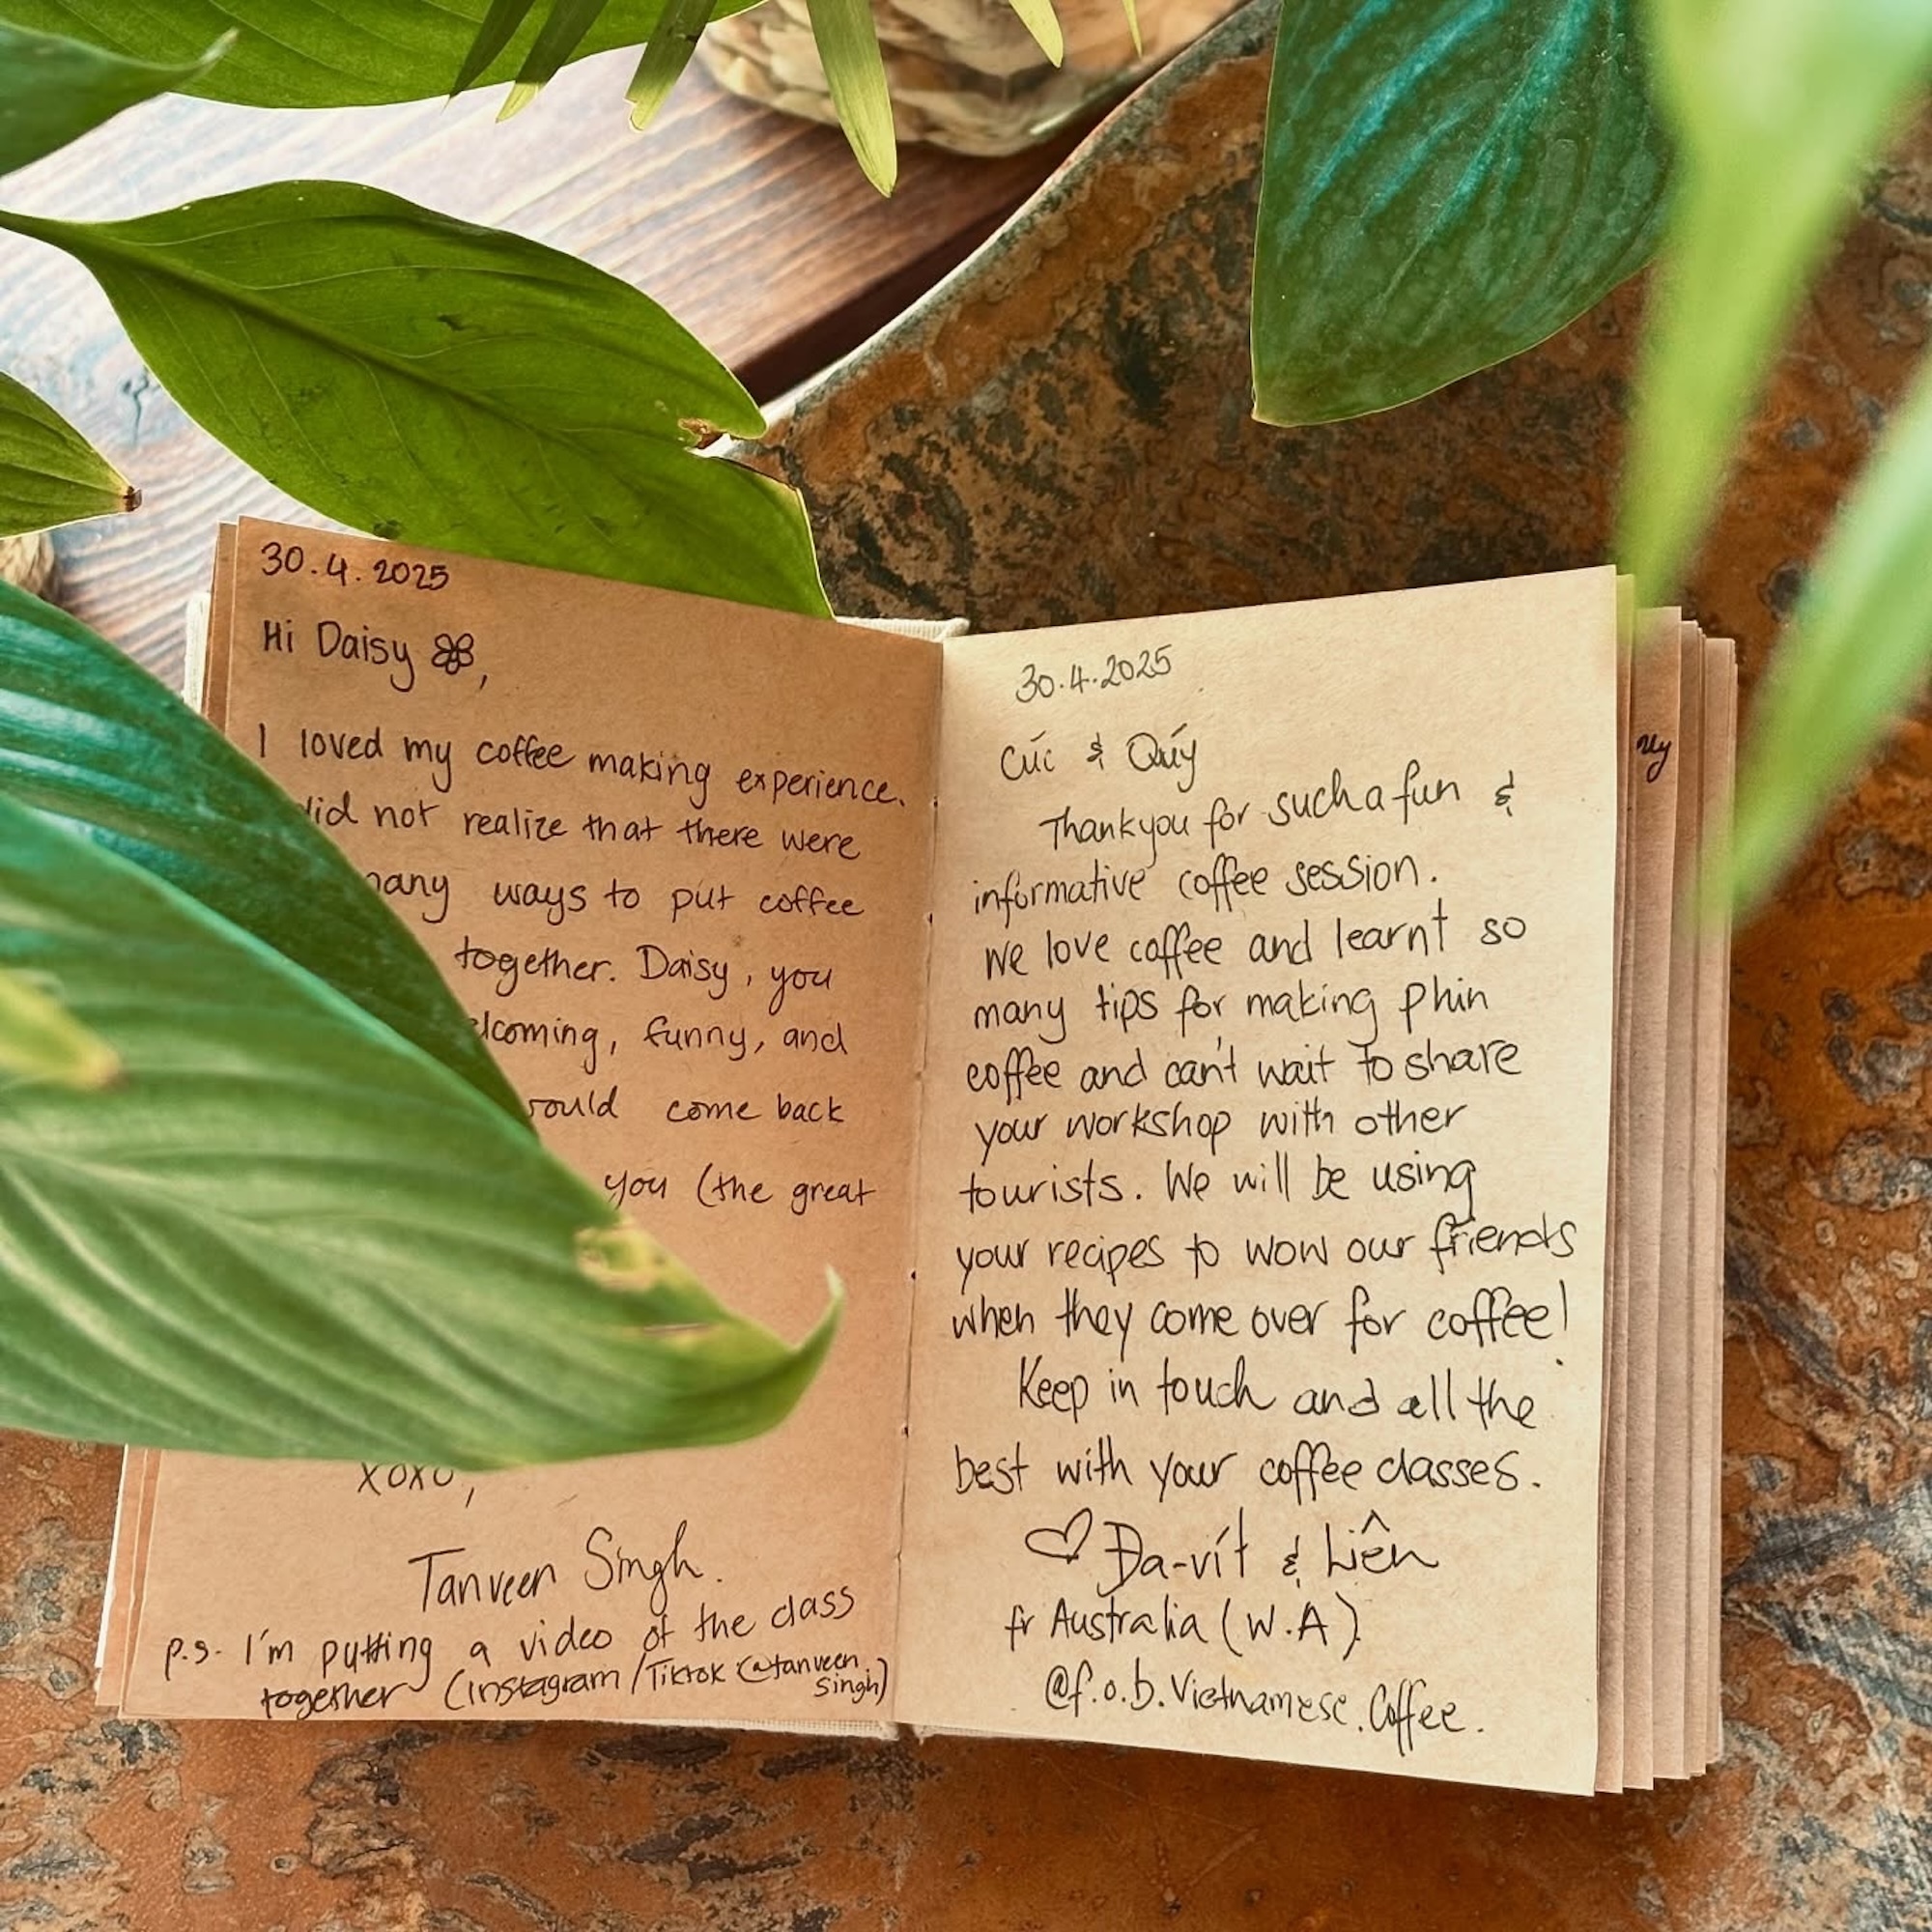 30.4.2025
Hi Daisy,
I loved my coffee making experience.
did not realize that there were
many ways to put coffee
together. Daisy, you
welcoming, funny, and
would come back
you (the great
xoxo,
Tanveen Singh.
p.s. I'm putting a video of the class
together (instagram/Tiktok @tanveen
singh)
30.4.2025
Cúc & Quý
Thankyou for such a fun &
informative coffee session.
We love coffee and learnt so
many tips for making phin
coffee and can't wait to share
your workshop with other
tourists. We will be using
your recipes to wow our friends
when they come over for coffee!
Keep in touch and all the
best with your coffee classes.
Đa-vít & Liên
fr Australia (W.A).
@f.o.b.Vietnamese.Coffee.